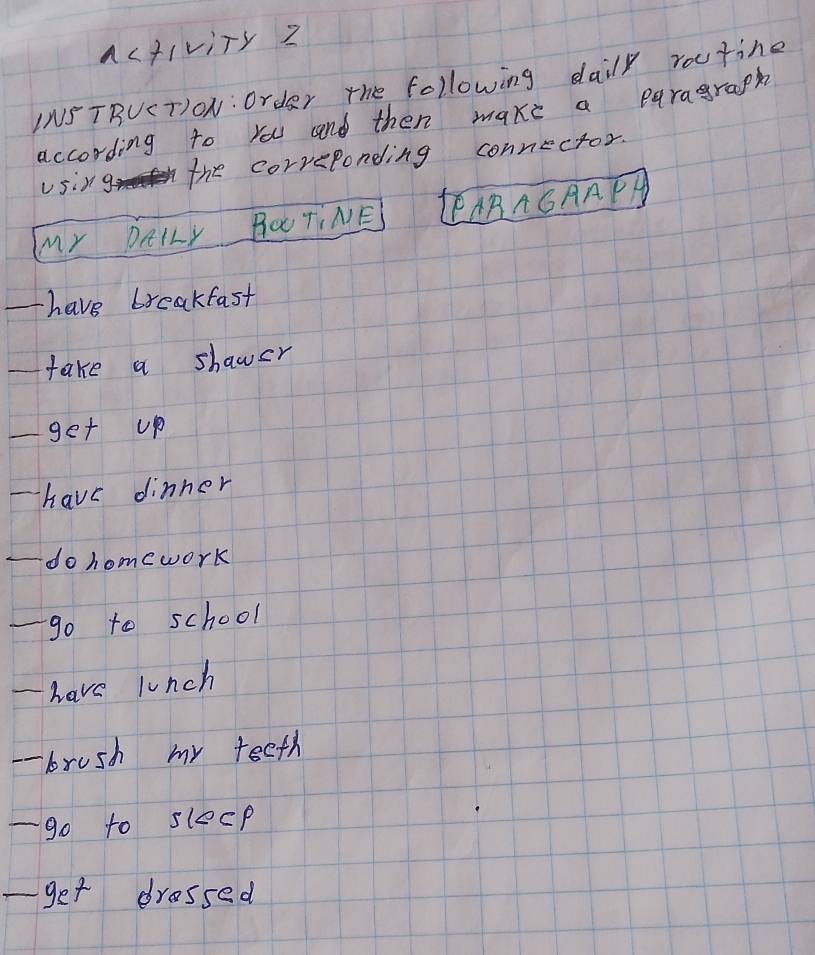 ACTIVITY 2
INSTRUCTION: Order the following daily routine
according to you and then make a paragraph
using the correponding connector.
MY DAILY ROUTINE PARAGRAPH
- have breakfast
- take a shawer
- get up
- have dinner
- do homework
- go to school
- have lunch
- brush my teeth
- go to sleep
- get dressed